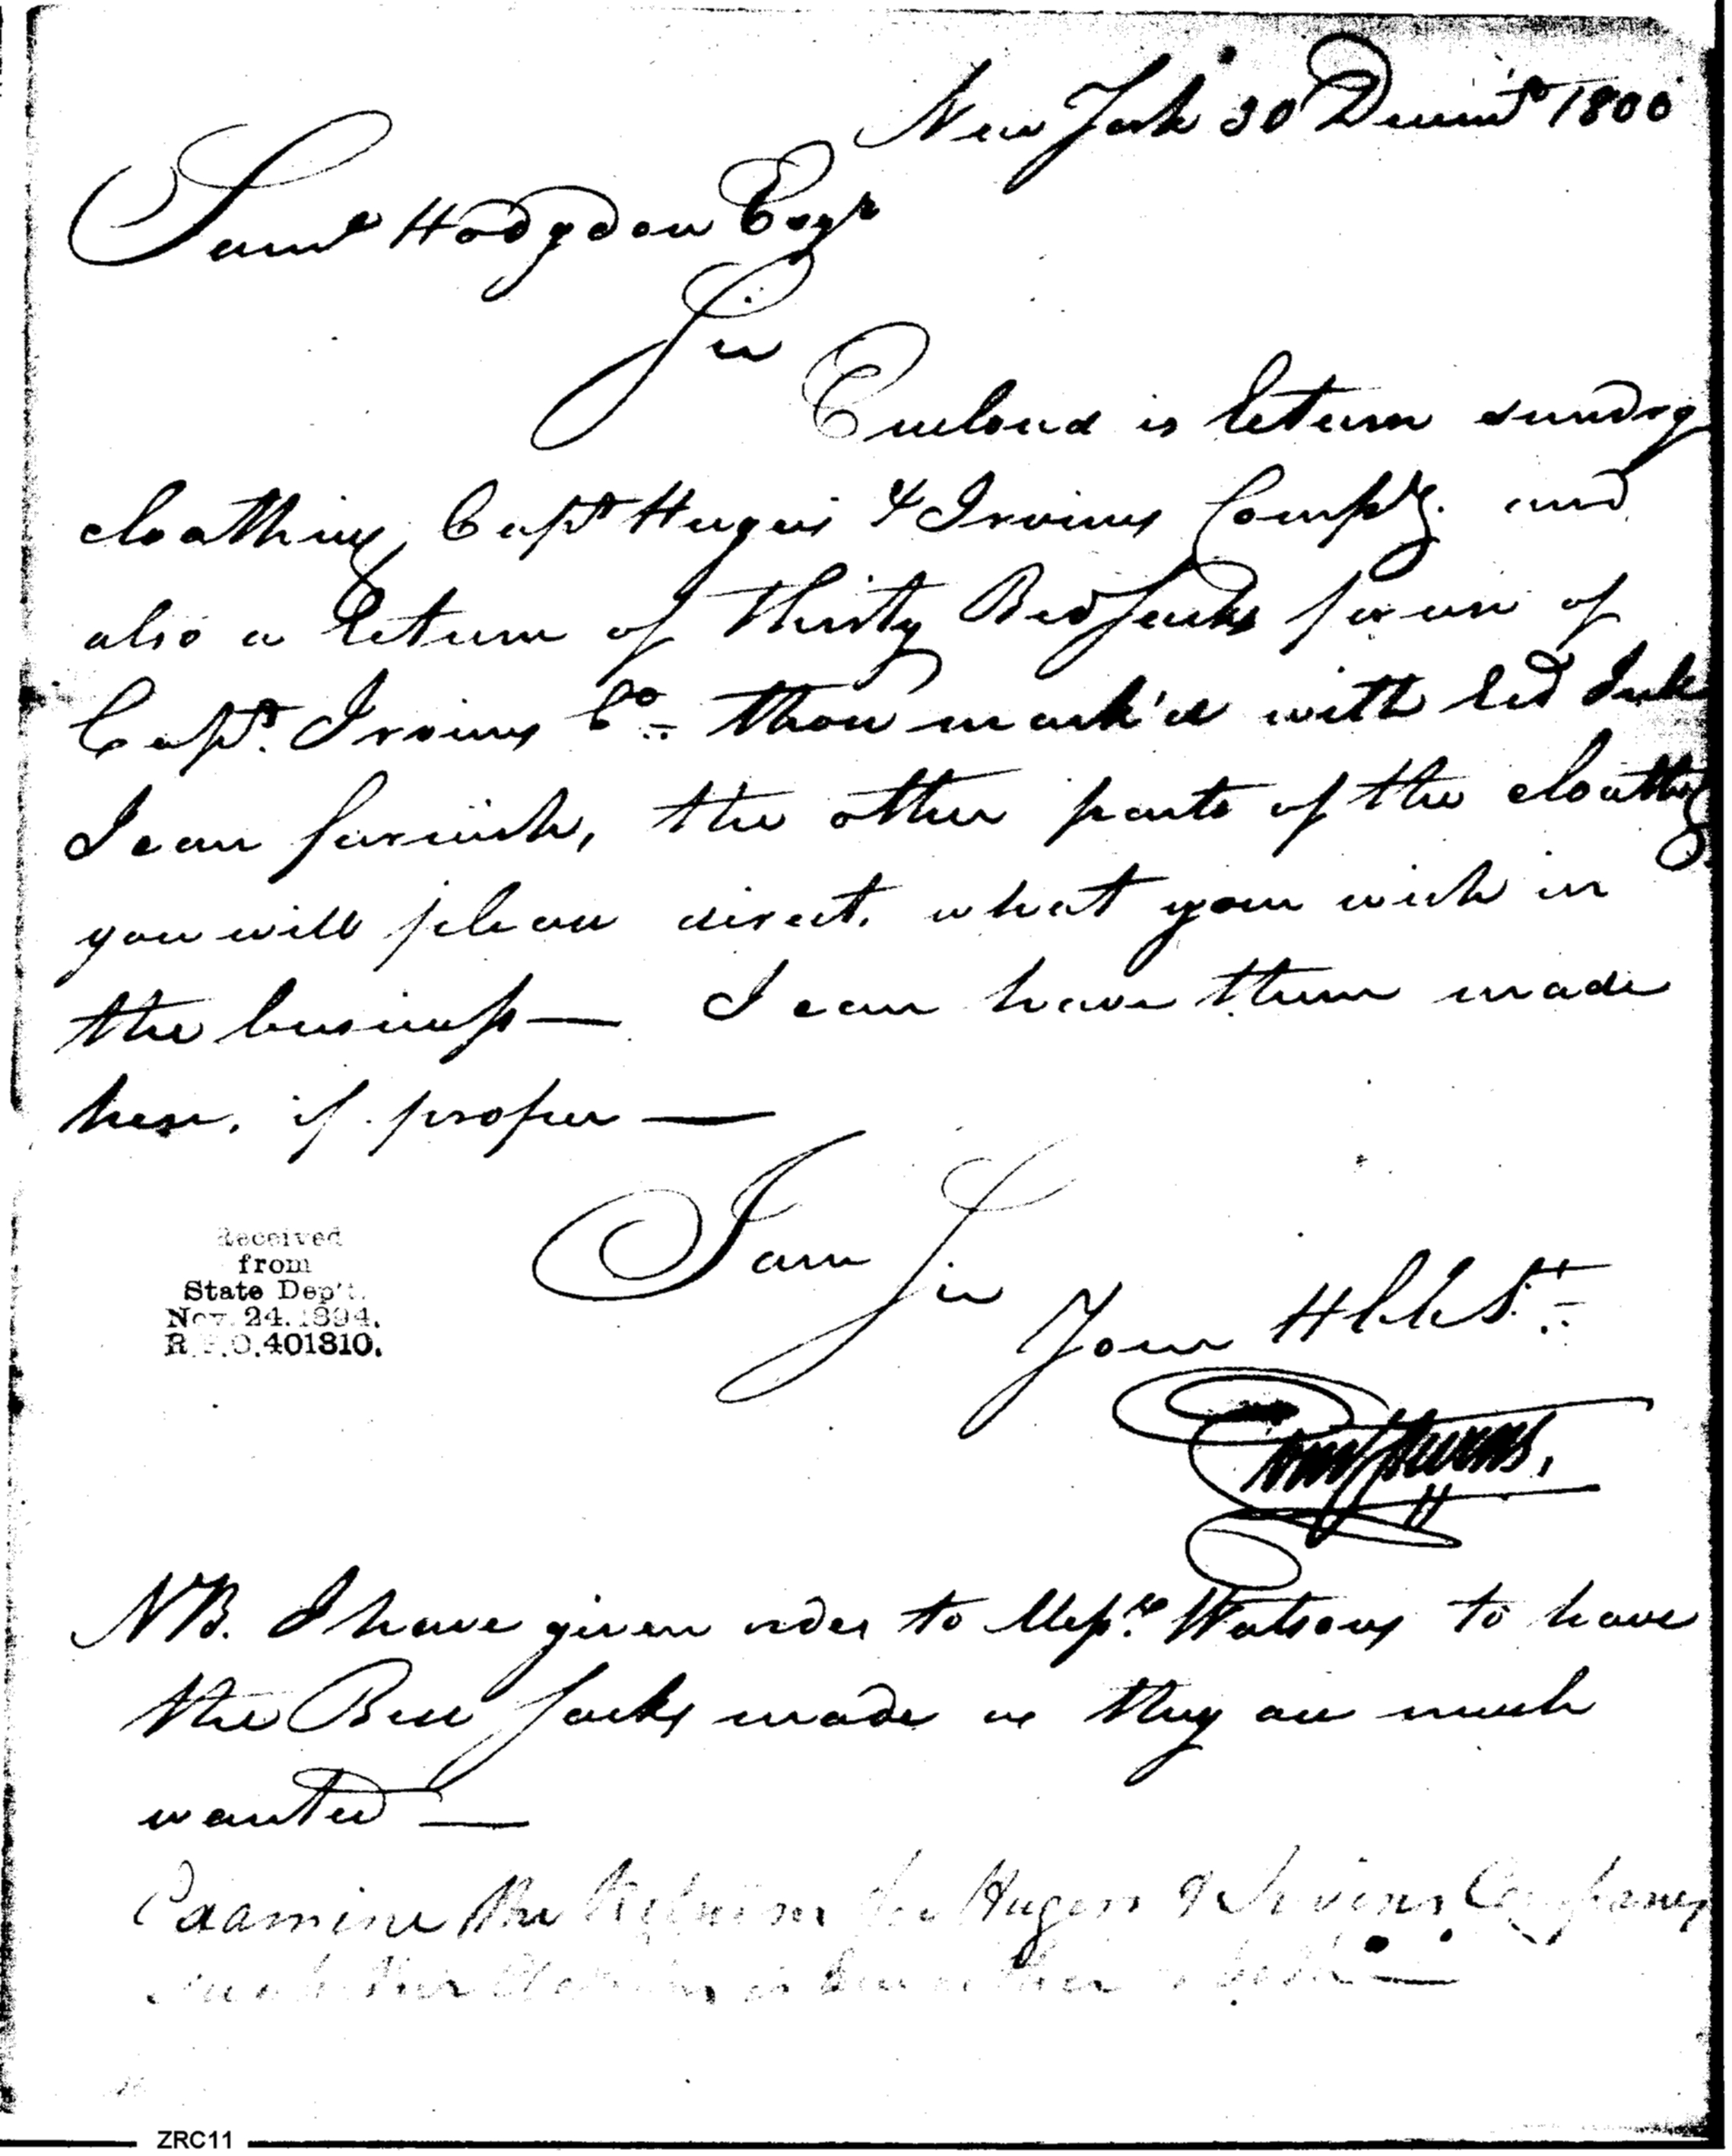 New York 30 Decemr 1800
Saml Hodgdon Esqr
Sir
Enclosed is return sundry
cloathing, Capt Hugers & Irvines Compys. and
also a return of thirty Bed Sacks for use of
Capt. Irvines Co. those mark'd with red Ink
I can furnish, the other parts of the cloathg
you will please direct. what you wish in
the business — I can have them made
here. if proper —
I am
Sir
Your H bl e St
Received
from
State Dep't.
Nov. 24. 1894.
R.P.O. 401310.
NB. I have given order to Messrs. Watsons to have
the Bed Sacks made as they are much
wanted —
Examine the Returns for Hugers & Irvines Companies
Clothing is due either or both —
ZRC11